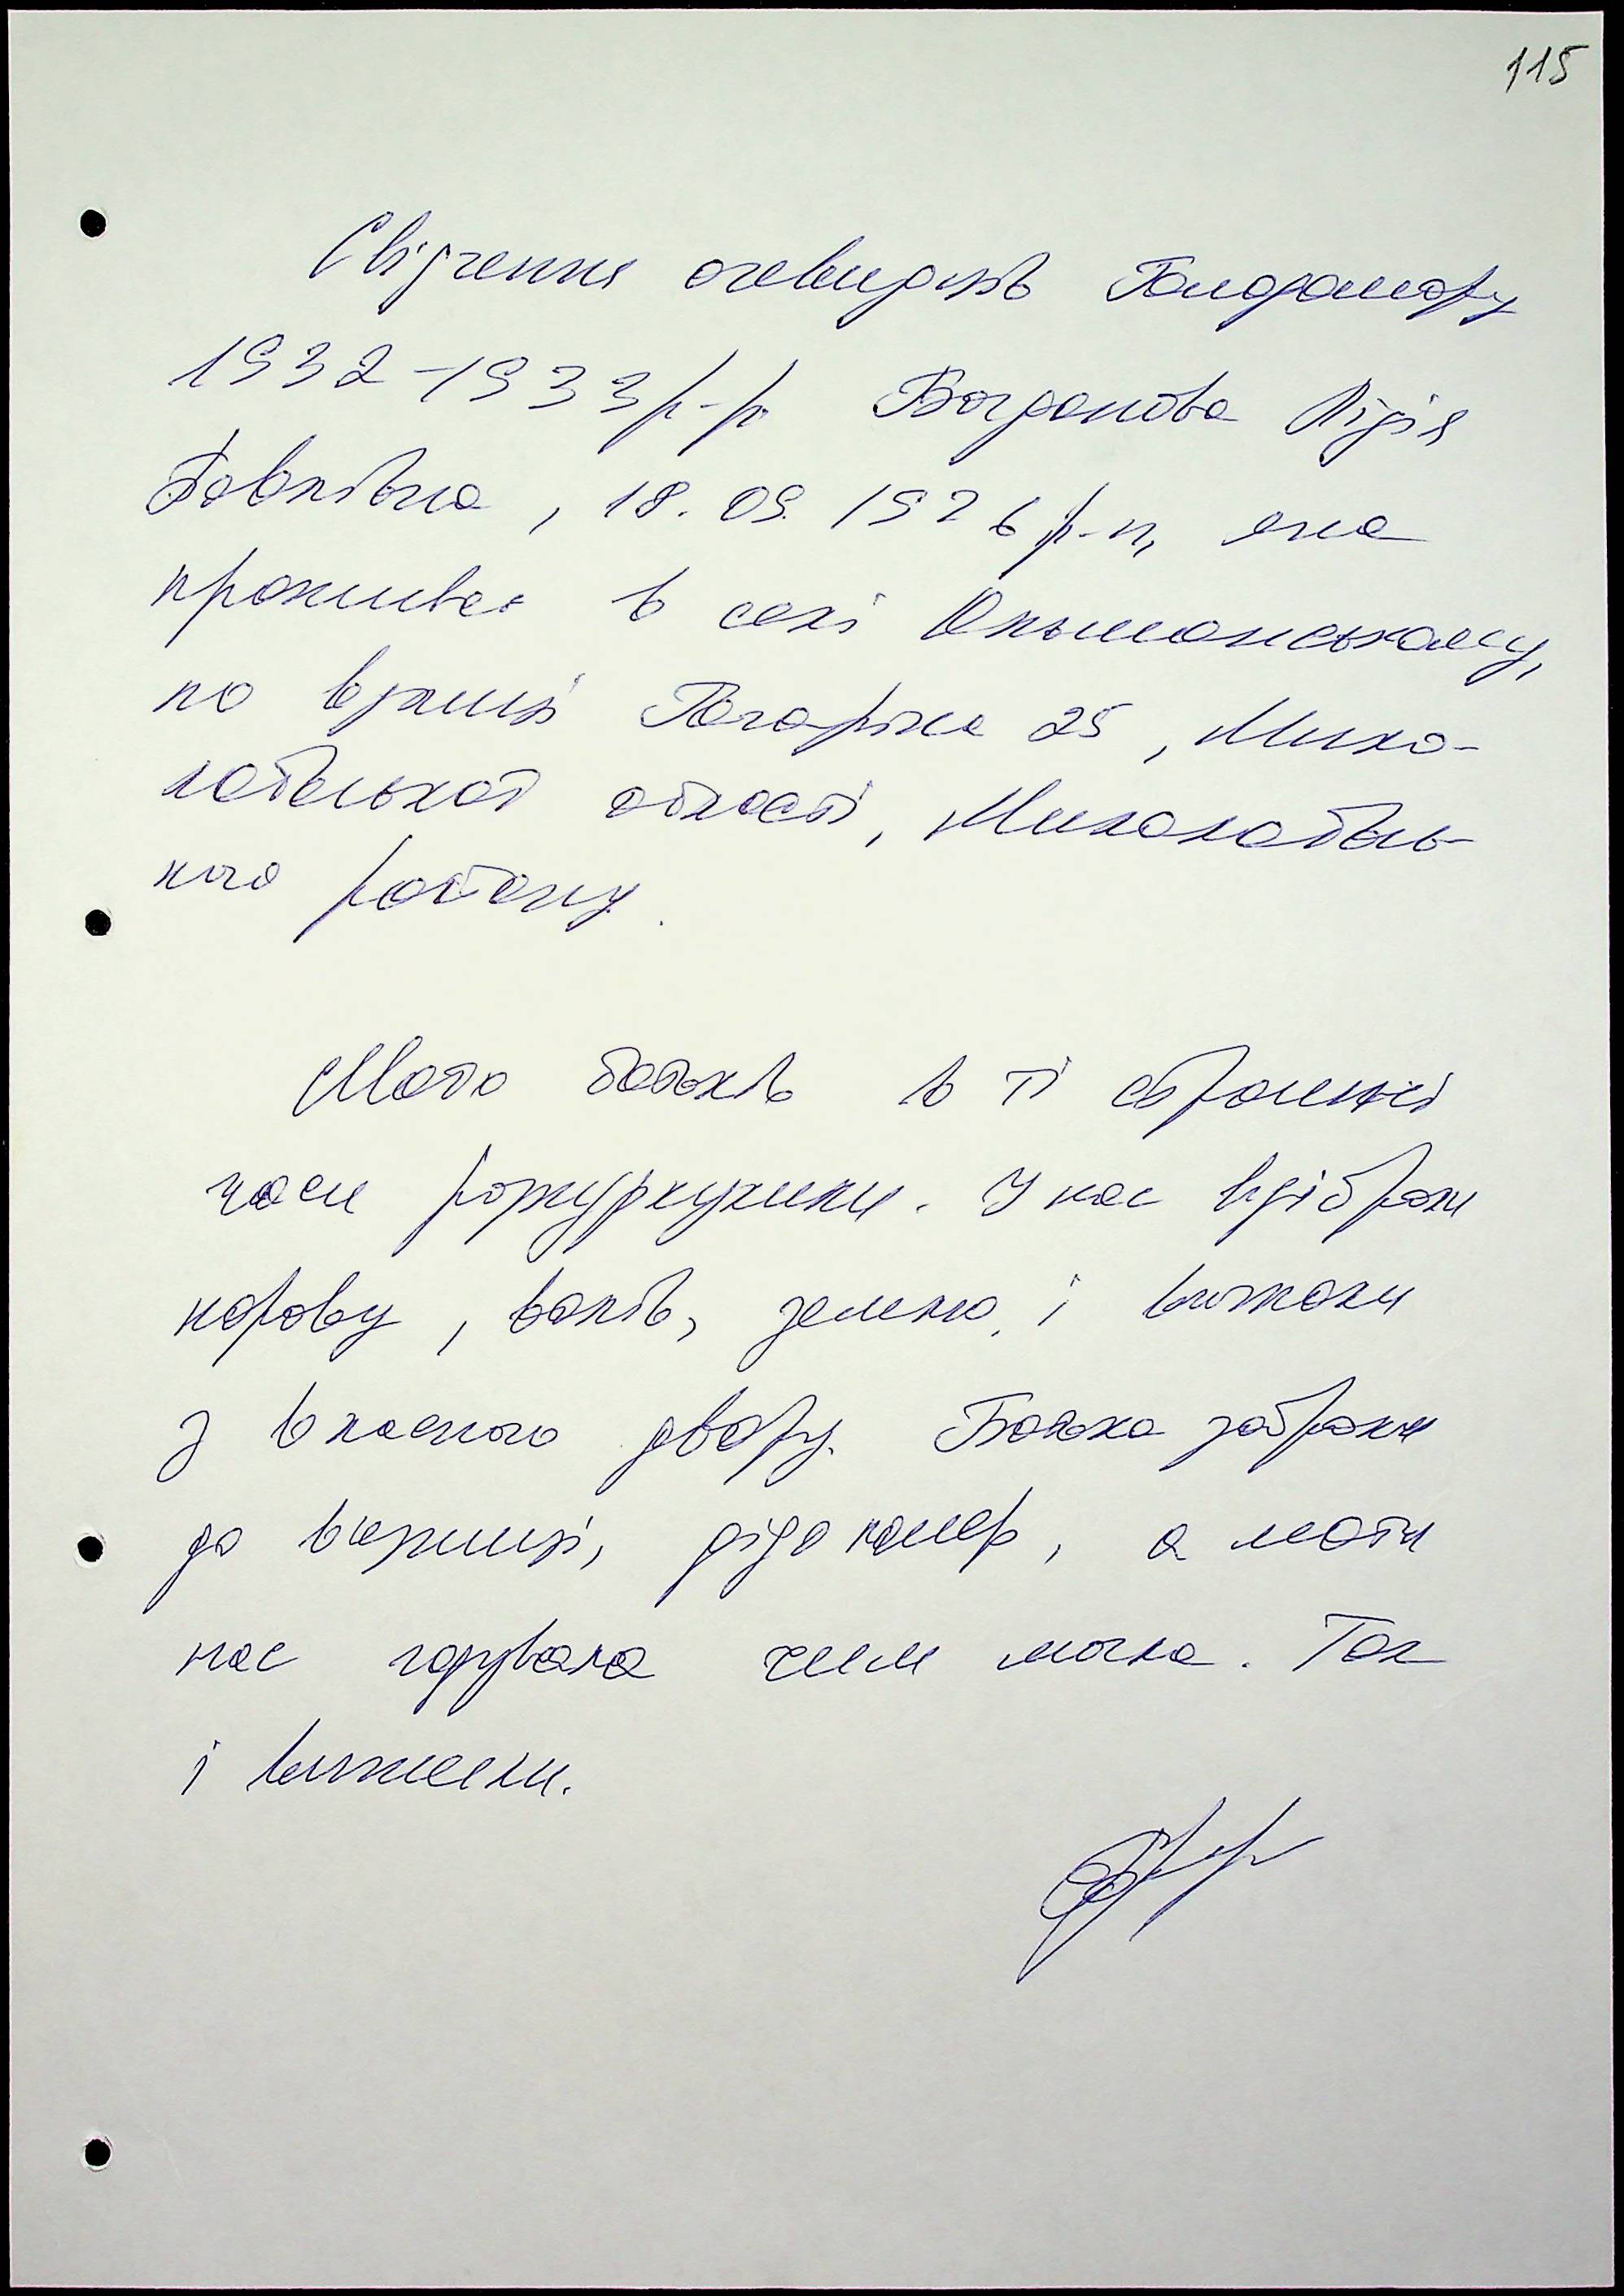 115
Свідчення очевидців Голодомору
1932-1933 р-р Богданова Лідія
Павлівна, 18.09.1926 р-н, яка
проживає в селі Ольшанському,
по вулиці Гагаріна 25, Мико-
лаївської області, Миколаївсь-
кого району.
Моїх батьків в ті страшні
часи розкуркулили. У нас відібрали
корову, волів, землю, і вигнали
з власного двору. Батька забрали
до вязниці, дідо помер, а мати
нас годувала чим могла. Так
і вижили.